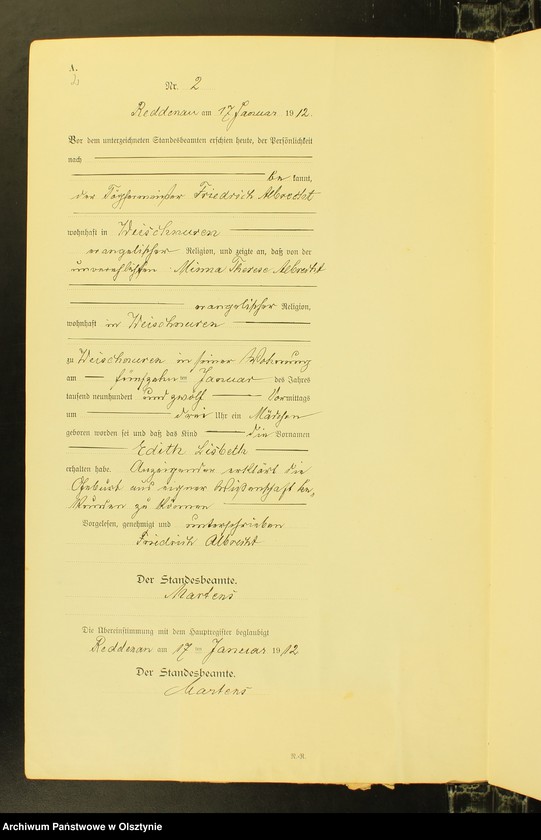 A.
2
Nr. 2
Reddenau am 17 Januar 1912.
Vor dem unterzeichneten Standesbeamten erschien heute, der Persönlichkeit
nach
be kannt,
der Töpfermeister Friedrich Albrecht
wohnhaft in Weischnuren
evangelischer Religion, und zeigte an, daß von der
unverehelichten Minna Therese Albrecht
evangelischer Religion,
wohnhaft in Weischnuren
zu Weischnuren in seiner Wohnung
am fünfzehn ten Januar des Jahres
tausend neunhundert und zwölf Vormittags
um drei Uhr ein Mädchen
geboren worden sei und daß das Kind die Vornamen
Edith Lisbeth
erhalten habe. Anzeigender erklärt die
Geburt aus eigner Wißenschaft be-
kunden zu können
Vorgelesen, genehmigt und unterschrieben
Friedrich Albrecht
Der Standesbeamte.
Martens
Die Übereinstimmung mit dem Hauptregister beglaubigt
Reddenau am 17 ten Januar 1912
Der Standesbeamte.
Martens
R.-R.
Archiwum Państwowe w Olsztynie